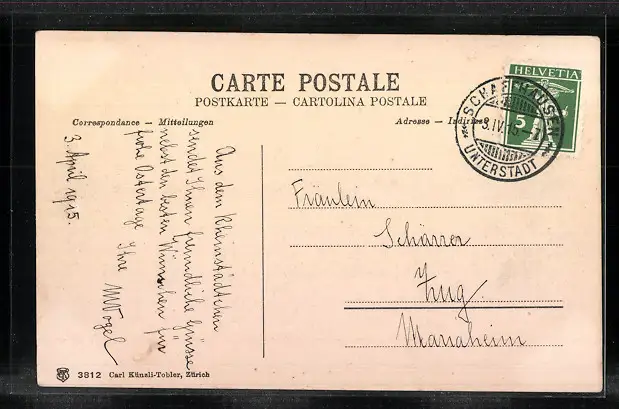 CARTE POSTALE
POSTKARTE — CARTOLINA POSTALE
Correspondance — Mitteilungen
Adresse — Indirizzo
HELVETIA
5
SCHAFFHAUSEN
3.IV.15.-7
UNTERSTADT
3. April 1915.
Aus dem Rheinstädtchen
sendet Ihnen freundliche Grüsse
nebst den besten Wünschen für
frohe Ostertage Ihre
MVogel
Fräulein
Schärrer
Zug
Mariaheim
3812 Carl Künzli-Tobler, Zürich